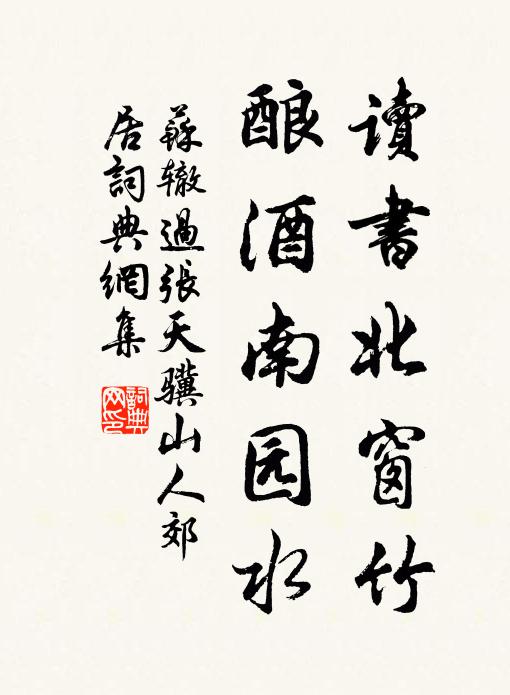 讀書北窗竹
酿酒南园水
蘇辙過張天驥山人郊
居詞典網集
詞典
网印